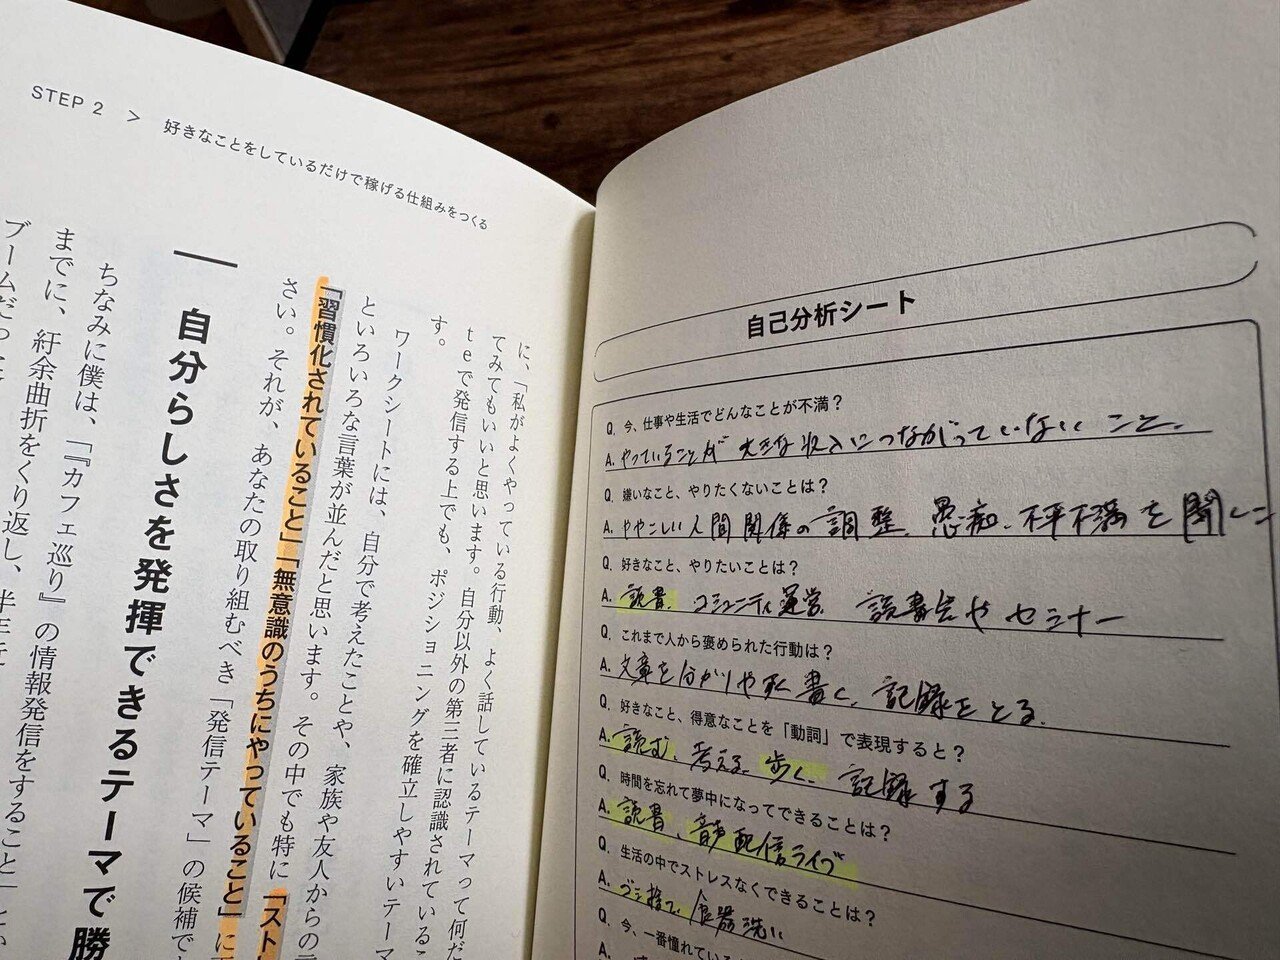 STEP 2 > 好きなことをしているだけで稼げる仕組みをつくる
に、「私がよくやっている行動、よく話しているテーマって何だ
てみてもいいと思います。自分以外の第三者に認識されているこ
teで発信する上でも、ポジショニングを確立しやすいテーマ
す。
ワークシートには、自分で考えたことや、家族や友人からの
といろいろな言葉が並んだと思います。その中でも特に「スト
「習慣化されていること」「無意識のうちにやっていること」に
さい。それが、あなたの取り組むべき「発信テーマ」の候補で
自分らしさを発揮できるテーマで勝
ちなみに僕は、「『カフェ巡り』の情報発信をすること」
までに、紆余曲折をくり返し、半年
自己分析シート
Q. 今、仕事や生活でどんなことが不満?
A. やっていることが大きな収入につながっていないこと。
Q. 嫌いなこと、やりたくないことは?
A. ややこしい人間関係の調整、愚痴、不平不満を聞くこ
Q. 好きなこと、やりたいことは?
A. 読書、コミュニティ運営、読書会やセミナー
Q. これまで人から褒められた行動は?
A. 文章を分かりやすく書く、記録をとる。
Q. 好きなこと、得意なことを「動詞」で表現すると?
A. 読む、考える、歩く、記録する
Q. 時間を忘れて夢中になってできることは?
A. 読書、音声配信ライブ
Q. 生活の中でストレスなくできることは?
A. ゴミ捨て、食器洗い
Q. 今、一番憧れている
A.